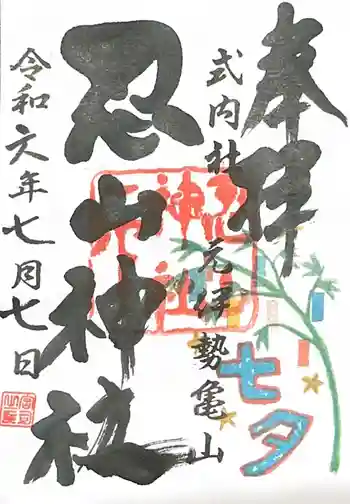 奉拝
式内社 元伊勢亀山
忍山神社
令和六年七月七日
七夕